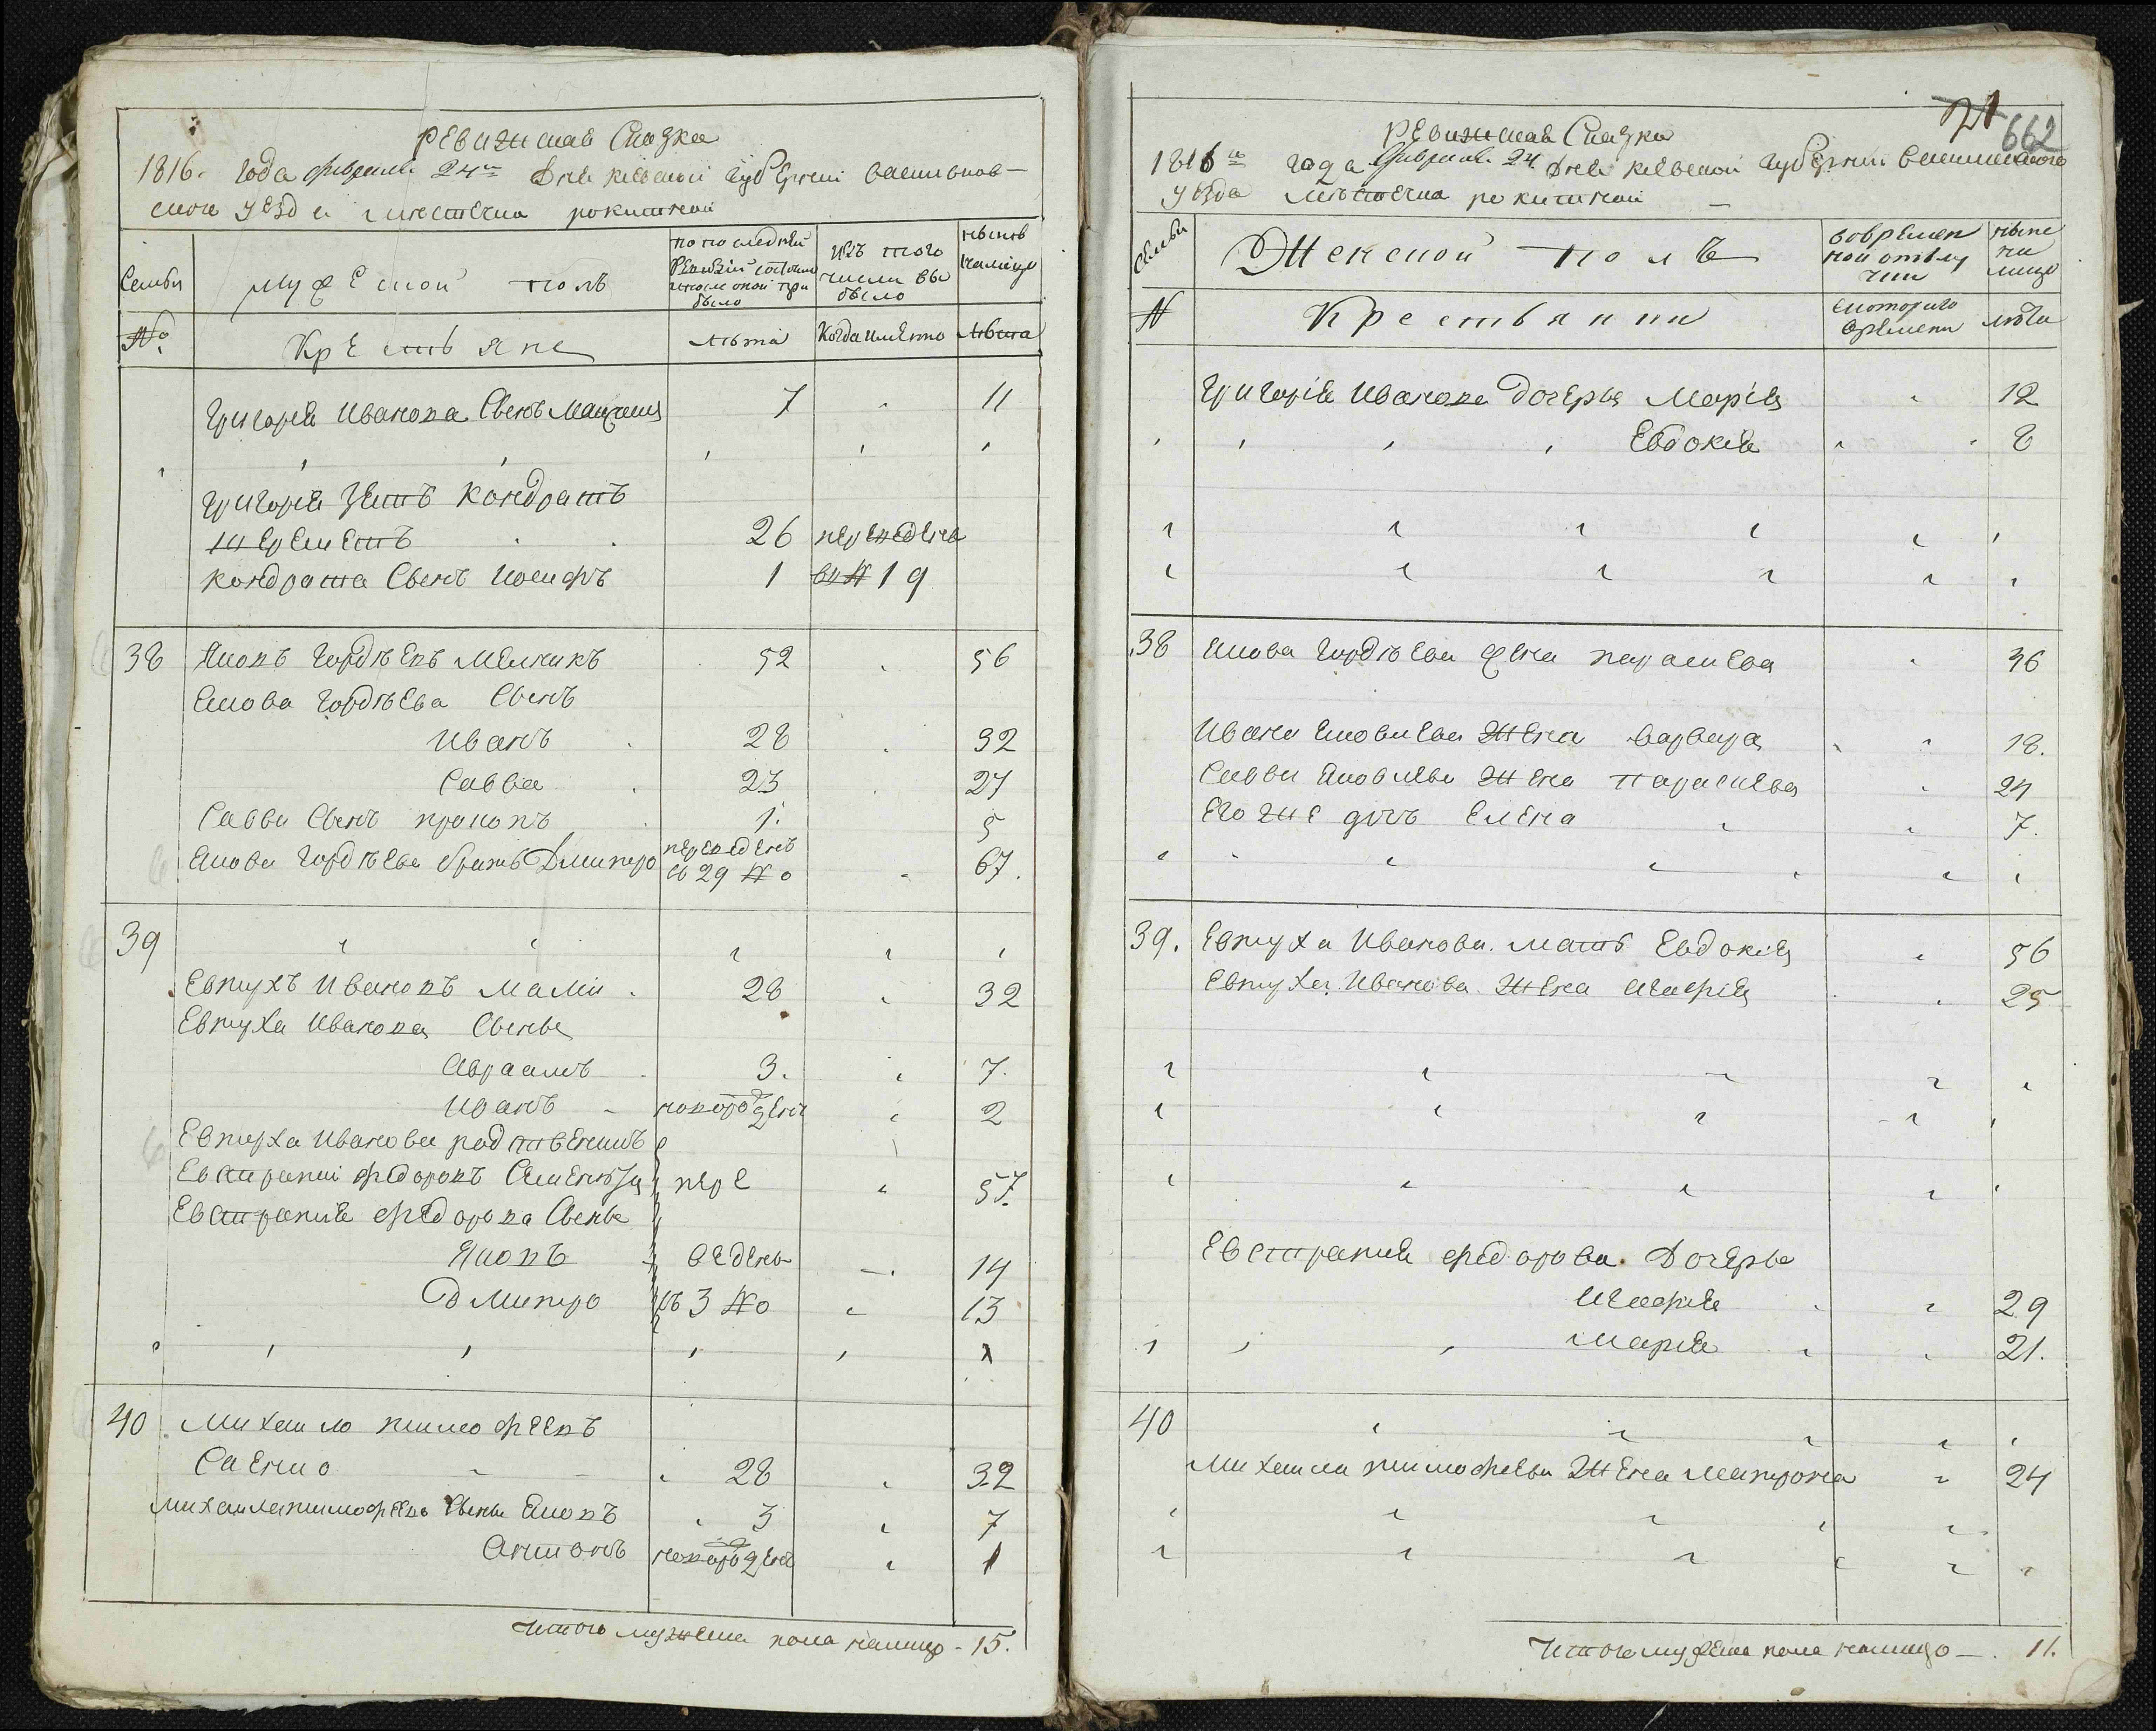 Ревижская Сказка
1816. Года февраля 24го Дня киевской губерниі василковъ-
ского уезда местечка рокитной
Семьи
мужеской полъ
по последней Ревизіи состояло и после оной прибыло
изъ того числа выбыло
ныне на лицо
№.
Крестьяне
лѣта
Когда имянно
лѣта
Григорія Иванова Сынъ Максим 7 11
Григорія Зять Кондратъ
Шереметъ 26 переведенъ
Кондрата Сынъ Иосифъ 1 въ № 19
38 Яковъ Гордѣевъ Мелникъ 52 56
Якова Гордѣева Сынъ
Иванъ 28 32
Савва 23 27
Саввы Сынъ Прокопъ 1. 5
Якова Гордѣева братъ Дмитро переведенъ съ 29 № 67.
39
Евтухъ Ивановъ 28 32
Евтуха Иванова Сыны
Авраамъ 3. 7.
Иванъ новорожденъ 2
Евтуха Иванова родственникъ
Евстратій Федоровъ пере 57.
Евстратія Федорова Сыны
Яковъ ведены 14
Дмитро съ 3 № 13
40 Михайло Тимофѣевъ
Саенко 28 32
Михайла Тимофѣева Сыны Яковъ 3 7
Антонъ новорожденъ 1
Итого мужеска пола налицо - 15.
21
662
Ревижская Сказка
1816го года февраля 24 дня киевской губерниі василковского
уезда местечка рокитной
Семьи
Женской полъ
во временной отлучки
ныне на лицо
№
Крестьянки
с котораго времени
лѣта
Григорія Иванова дочеры Марія 12
Евдокія 8
38 Якова Гордѣева жена Параскева 36
Ивана Яковлева Жена Варвара 18.
Саввы Яковлева Жена Параскева 24
Его же дочь Елена 7.
39. Евтуха Иванова мать Евдокія 56
Евтуха Иванова Жена Агафія 25
Евстратія Федорова Дочеры
Агафія 29
Марія 21.
40
Михайла Тимофѣева Жена Матрона 24
Итого мужеска пола налицо - 11.